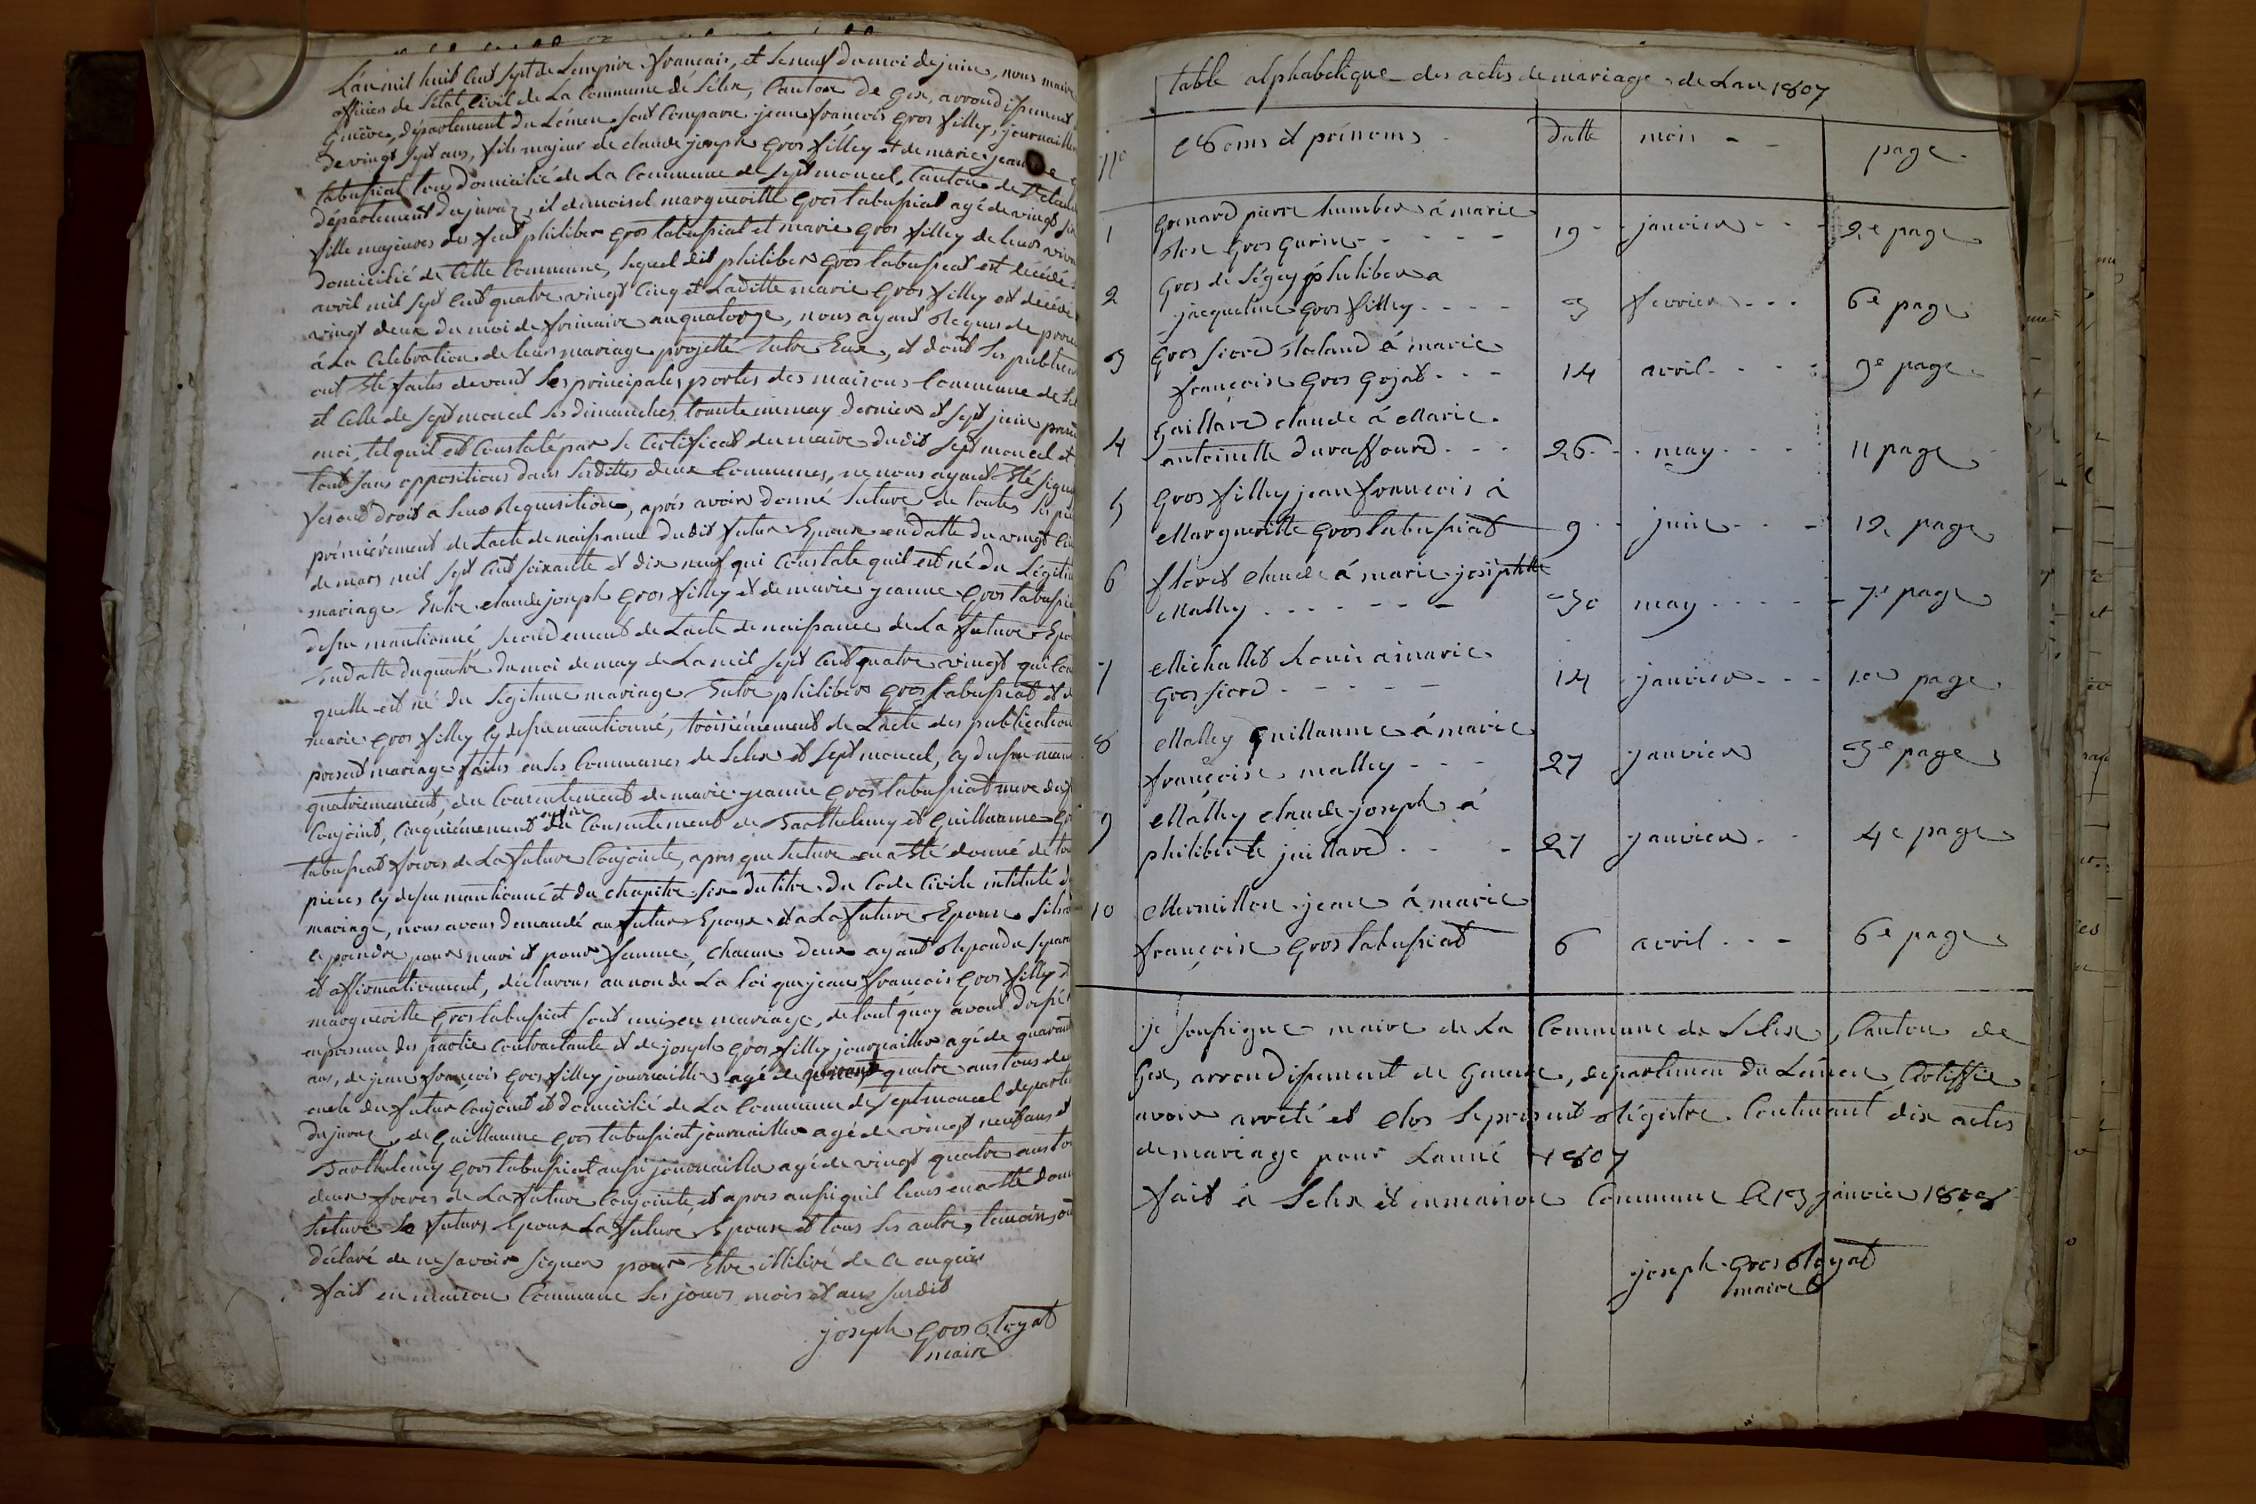 L'an mil huit cent sept de Lempire francais, et le neuf du moi de juin, nous maire
officier de letat Civil de La Commune de Lélex, Canton de Gex, arrondissement
Geneve, département du Léman sont Comparu jean francois gros filley, journailler
de vingt sept ans, fils majeur de claude joseph gros filley et de marie jeanne
tabussiat tous domicilié de La Commune de Septmoncel, Canton de St claude
département du jura, et demoisel margueritte gros tabussiat agé de vingt
fille majeures des feut philiber gros tabussiat et marie gros filley de leurs
domicilié de Cette Commune, lequel dit philiber gros tabussiat est décédé
avril mil sept cent quatre vingt cinq et Laditte marie gros filley est décédé
vingt deux du moi de frimaire an quatorze, nous ayant requis de
à La Celebration de leurs mariage projetté Entre Eux, et dont les
ont été faites devant les principales portes des maisons Commune de
et Celle de Septmoncel les dimanches trente un may dernier et sept juin
moi, tel quil est Constaté par le Certificat du maire dudit Septmoncel et
tout sans oppositions dans lesdittes deux Communes, ne nous ayant Eté
fesant droit a leurs Requisition, aprés avoir donné lecture de toutes les
prémiérement de Lacte de naissance dudit futur Epoux en datte du vingt
de mars mil sept cent soixante et dix neuf qui Constate quil est né du Légitime
mariage Entre claude joseph gros filley et de marie jeanne gros
dessu mantionné, secondement de Lacte de naissance de La future
En datte du quatre du moi de may de La mil sept cent quatre vingt qui
quelle est né du Légitime mariage Entre philiber gros tabussiat et
marie gros filley cy dessu mantionné, troisiémement de Lacte des publication
present mariage faites en les Communes de Lelex et Septmoncel, cy dessu
quatriemement, du Consentement de marie jeanne gros tabussiat mere
Conjoint, Cinquiémement du Consentement de Barthelemy et Guillaume
tabussiat freres de La future Conjointe, apres que lecture en a été donné de
pieces cy dessu mantionné et du chapitre six du titre du Code Civile intitulé
mariage, nous avons demandé au futur Epoux et a La future Epouse
ce prendre pour mari et pour femme, chacun deux ayant Repondu
et affirmativement, déclarons au non de La loi que jean francois gros filley
margueritte gros tabussiat sont unis en mariage, de tout quoy avons
en presence des partie Contractante et de joseph gros filley journailler agé de
ans, de jean francois gros filley journailler agé de quatre ans tous
oncle du futur Conjoint et domicilié de La Commune de Septmoncel
du jura, de Guillaume gros tabussiat journailler agé de vingt neuf ans et
Barthelemy gros tabussiat aussi journailler agé de vingt quatre ans
deux freres de La future Conjointe, et apres aussi quil leurs en a été
lecture Le futurs Epoux La future Epouse et tous les autres temoins
déclaré de ne savoir signer pour Etre illitéré de Ce enquis
fait en maison Commune Les jours mois et ans susdit
joseph gros Royat
maire
table alphabetique des actes de mariage de Lan 1807
No Noms et prénoms datte mois page
1 Grenard pierre humber à marie
Rose gros gurin 19 janvier 2e page
2 Gros de Ségey philiber a
jacqueline gros filley 3 fevrier 6e page
3 Gros fiord Roland á marie
françoise gros gojat 14 avril 9e page
4 Gaillard claude á Marie
antoinette duraffourd 26 may 11 page
5 Gros filley jean francois à
Margueritte gros tabussiat 9 juin 12 page
6 floret claude á marie josephtte
Malley 30 may 7e page
7 Michallet Louis a marie
gros fiord 14 janvier 1er page
8 Malley guillaume á marie
françoise malley 27 janvier 3e page
9 Malley claude joseph á
philiberte juillard 27 janvier 4e page
10 Mermillon jean á marie
françoise gros tabussiat 6 avril 6e page
je soussigne maire de La Commune de Lelex, Canton de
Gex, arrondissement de Geneve, departement du Léman Certiffie
avoir arrêté et clos le present régistre Contenant dix actes
de mariage pour Lanné 1807
fait à Lelex et en maison Commune Ce 13 janvier 1808
joseph gros Royat
maire